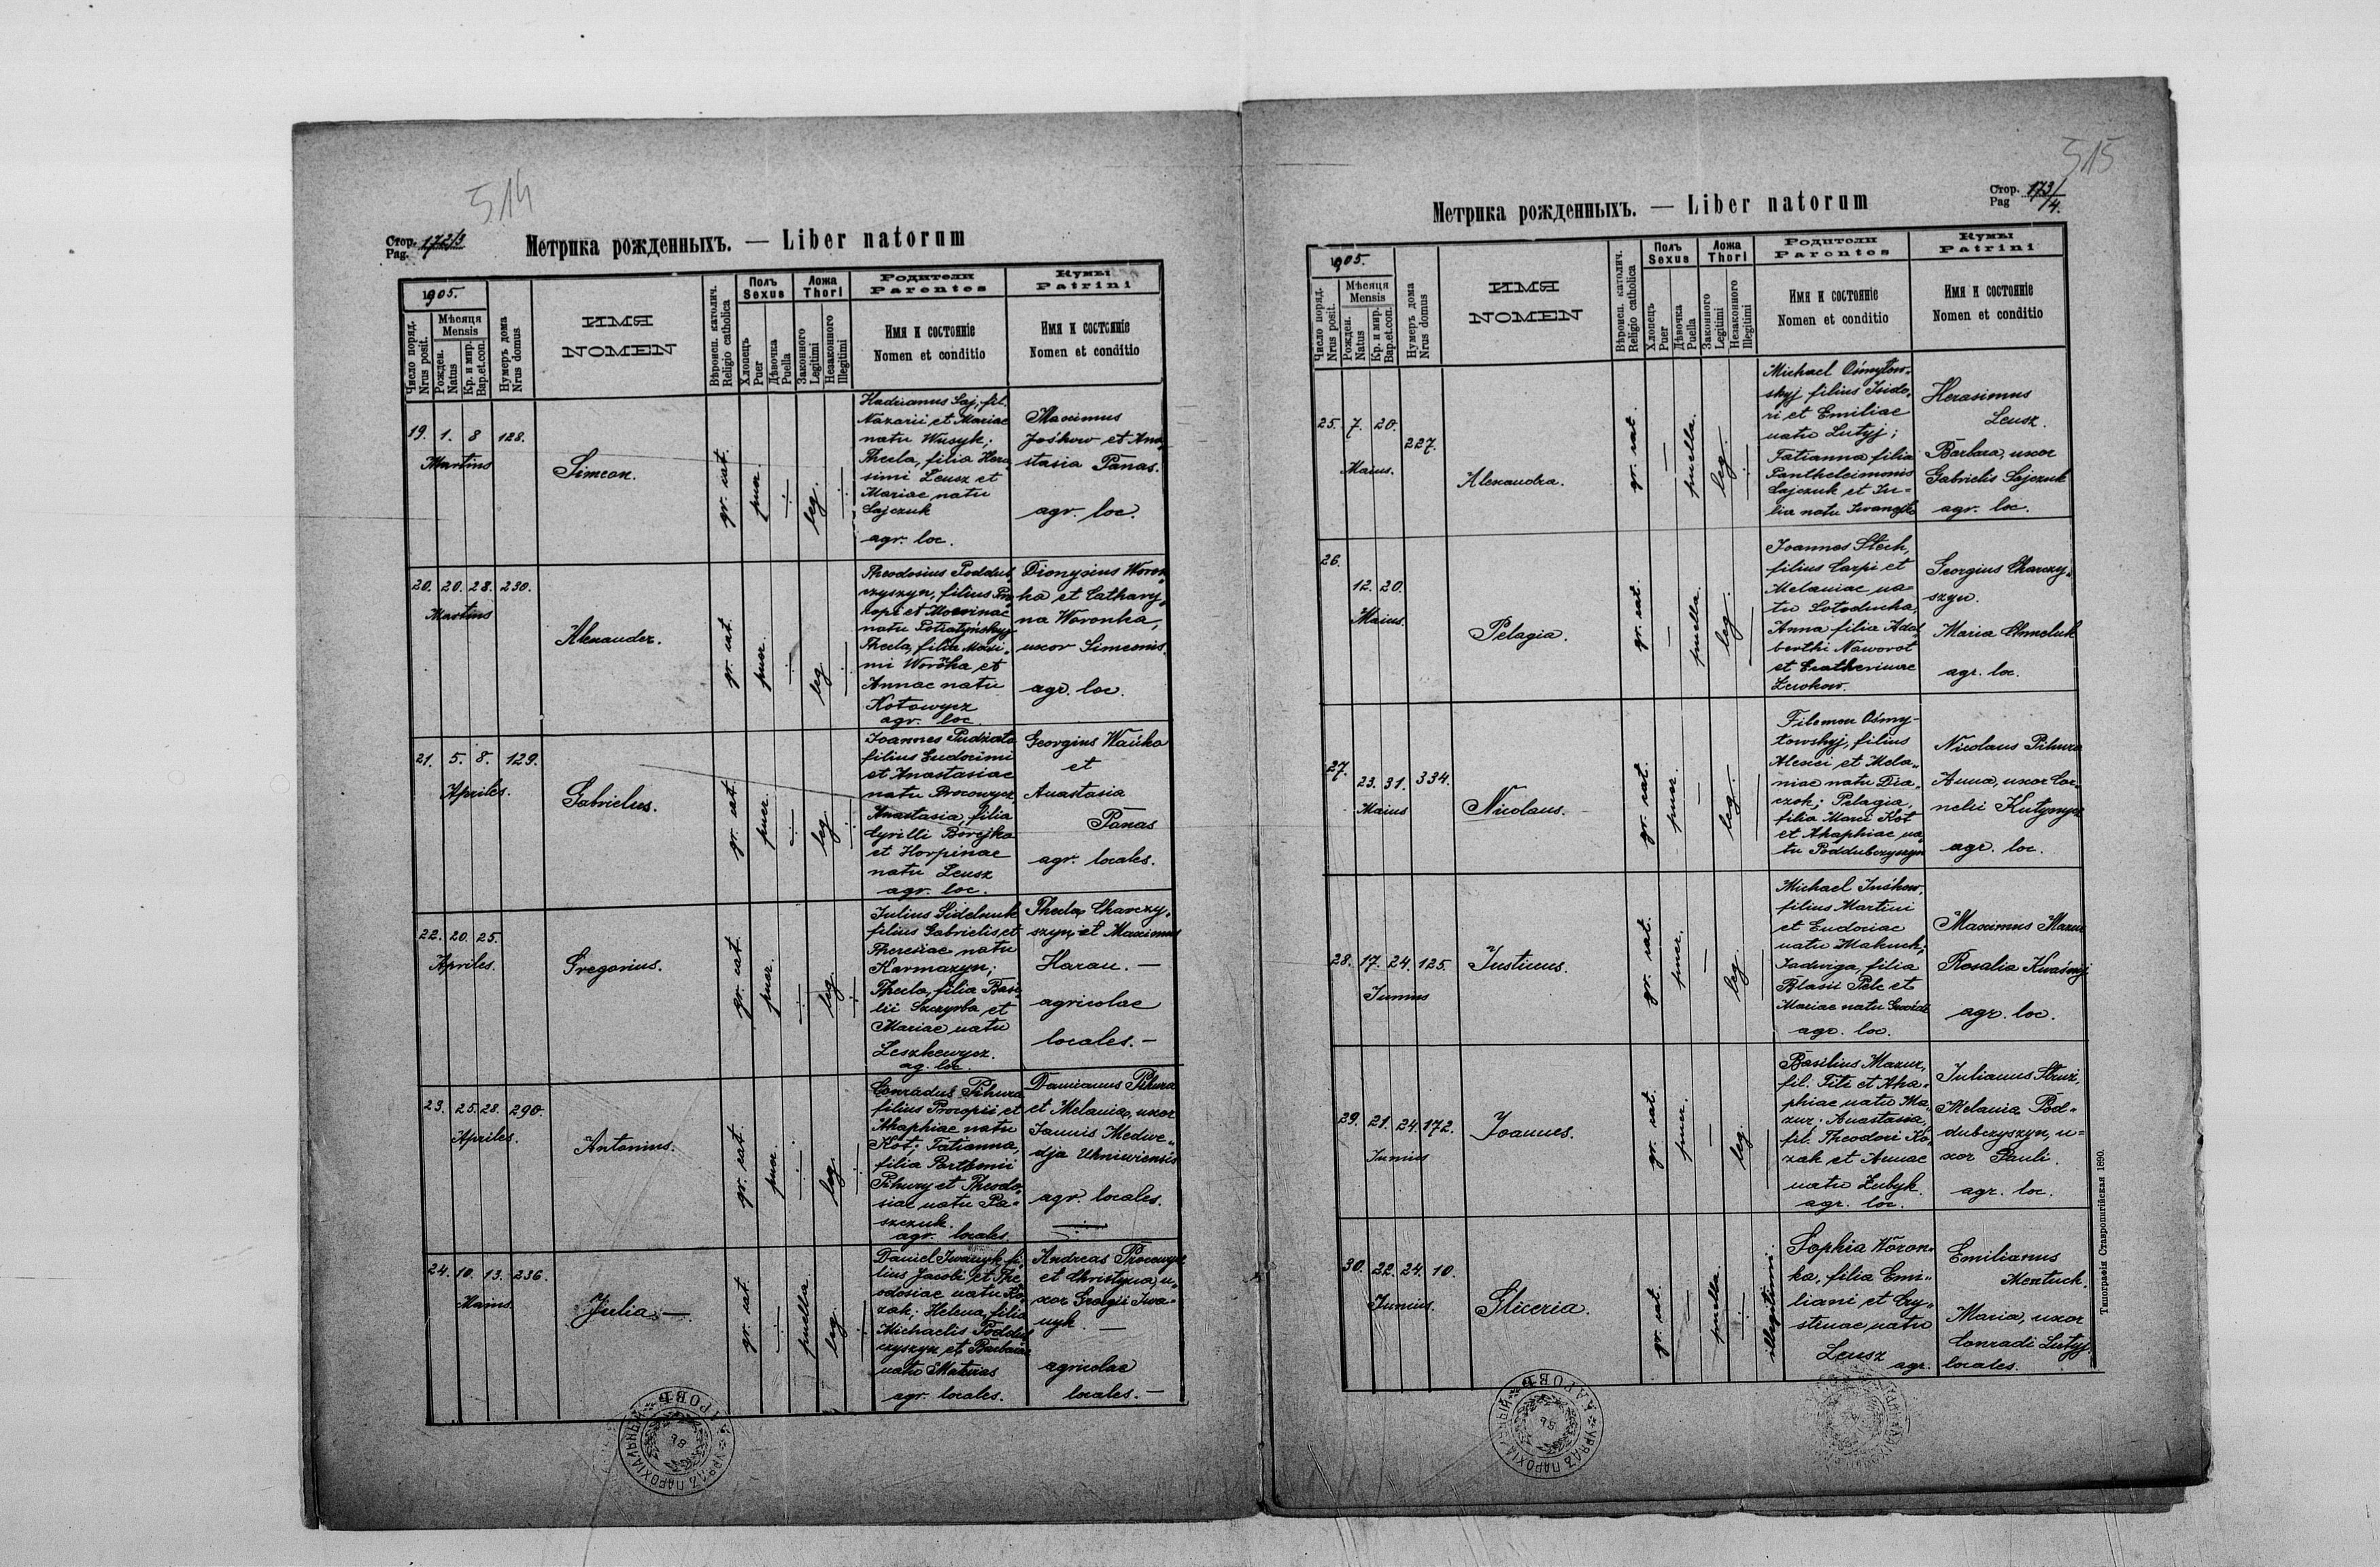 514
Стор. 172/3
Pag.
Метрика рожденныхъ. — Liber natorum
1905.
Число поряд.
Nrus posit.
Мѣсяця
Mensis
Рожден.
Natus
Кр. и мир.
Bap.et.con.
Нумеръ дома
Nrus domus
ИМЯ
NOMEN
Вѣроисп. католич.
Religio catholica
Полъ
Sexus
Хлопець
Puer
Дѣвочка
Puella
Ложа
Thori
Законного
Legitimi
Незаконного
Illegitimi
Родители
Parentes
Имя и состояніе
Nomen et conditio
Кумы
Patrini
Имя и состояніе
Nomen et conditio
19. 1. 8 128.
Martius
Simeon.
gr. cat.
puer.
leg.
Hadrianus Saj, fil.
Nazarii et Mariae
natu Wusyk;
Thecla, filia Hera
simi Leusz et
Mariae natu
Sajczuk
agr. loc.
Maximus
Jośkow et Ana
stasia Panas.
agr. loc.
20. 20. 28. 230.
Martius
Alexander.
gr. cat.
puer.
leg.
Theodosius Poddub
czyszyn, filius Pro
kopi et
natu
Thecla, filia Maxi„
mi Worońka et
Annae natu
Kotowycz
agr. loc.
Dionysius Woroń
ka et Cathary„
na Woronka,
uxor Simeonis.
agr. loc.
21. 5. 8. 129.
Apriles.
Gabrielus.
gr. cat.
puer.
leg.
Joannes
filius Eudocimi
et Anastasiae
natu Procowycz,
Anastasia, filia
Cyrilli Borejko
et Horpinae
natu Leusz
agr. loc.
Georgius Wańko
et
Anastasia
Panas
agr. locales.
22. 20. 25.
Apriles.
Gregorius.
gr. cat.
puer.
leg.
Julius Sidelnuk
filius Gabrielis, et
Theresiae natu
Karmazyn;
Thecla, filia Basi
lii Szczyrba et
Mariae natu
Leszkewycz.
ag. loc.
Thecla Charczy„
szyn, et Maximus
Hazau. —
agricolae
locales. —
23. 25. 28. 290.
Apriles.
Antonius.
gr. cat.
puer.
leg.
Conradus Pihura
filius Procopii et
Ahaphiae natu
Kot; Tatianna,
filia Parthenii
Pihury et Theodo„
siae natu Pa„
szczuk.
agr. locales.
Damianus Pihura
et Melania, uxor
Joannis Medwe„
dja Uhniwiensis
agr. locales.
24. 10. 13. 236.
Maius.
Julia. —
gr. cat.
puella.
leg.
Daniel Iwaszyk, fi„
lius Jacobi et The„
odosiae natu Ko„
zak; Helena, filia
Michaelis Poddub
czyszyn et Barbarae
natu
agr. locales.
Andreas Procowycz
et Christyna, u„
xor Georgii Iwa„
nyk. —
agricolae
locales. —
УРЯДЪ ПАРОХІАЛЬНЫЙ
515
Стор. 173/4.
Pag
Метрика рожденныхъ. — Liber natorum
1905.
Число поряд.
Nrus posit.
Мѣсяця
Mensis
Рожден.
Natus
Кр. и мир.
Bap.et.con.
Нумеръ дома
Nrus domus
ИМЯ
NOMEN
Вѣроисп. католич.
Religio catholica
Полъ
Sexus
Хлопець
Puer
Дѣвочка
Puella
Ложа
Thori
Законного
Legitimi
Незаконного
Illegitimi
Родители
Parentes
Имя и состояніе
Nomen et conditio
Кумы
Patrini
Имя и состояніе
Nomen et conditio
25. 7. 20. 227.
Maius.
Alexandra.
gr. cat.
puella.
leg.
Michael Ośmyłow„
skyj filius Isido„
ri et Emiliae
natu Lutyj;
Tatianna filia
Pantheleimonis
Sajczuk et Ju„
lia natu
Herasimus
Leusz.
Barbara, uxor
Gabrielis Sajczuk
agr. loc.
26.
12. 20.
Maius.
Pelagia.
gr. cat.
puella.
leg.
Joannes Stech,
filius Carpi et
Melaniae na„
tu Sołoducha,
Anna filia Adal
berthi Naworot
et Catherinae
Lewkow.
Georgius Charczy„
szyn.
Maria Chmeluk
agr. loc.
27. 23. 31. 334.
Maius
Nicolaus.
gr. cat.
puer.
leg.
Filemon Ośmy-
łowskyj, filius
Alexii et Mela„
niae natu Dia„
czok; Pelagia,
filia Marci Kot
et Ahaphiae na„
tu Poddubczyszyn
Nicolaus Pihura
Anna, uxor Cor„
nelii Kutynycz
agr. loc.
28. 17. 24. 125.
Junius
Justinus.
gr. cat.
puer.
leg.
Michael Juśkow,
filius Martini
et Eudociae
natu Makuch;
Jadwiga, filia
Blasii Pelc et
Mariae natu
agr. loc.
Maximus Mazur
Rosalia
agr. loc.
29. 21. 24. 172.
Junius
Joannes.
gr. cat.
puer.
leg.
Basilius Mazur,
fil. Titi et Aha„
phiae natu Ma„
zur; Anastasia,
fil. Theodori Ko„
zak et Annae
natu Zubyk.
agr. loc.
Julianus
Melania Pod„
dubczyszyn, u„
xor Pauli.
agr. loc.
30. 22. 24. 10.
Junius.
Gliceria.
gr. cat.
puella.
illegitimi.
Sophia Woron„
ka, filia Emi„
liani et Cry„
stinae, natu
Leusz
agr.
Emilianus
Mextuch.
Maria, uxor
Conradi Lutyj.
locales.
Типографія Ставропигійская 1890.
УРЯДЪ ПАРОХІАЛЬНЫЙ